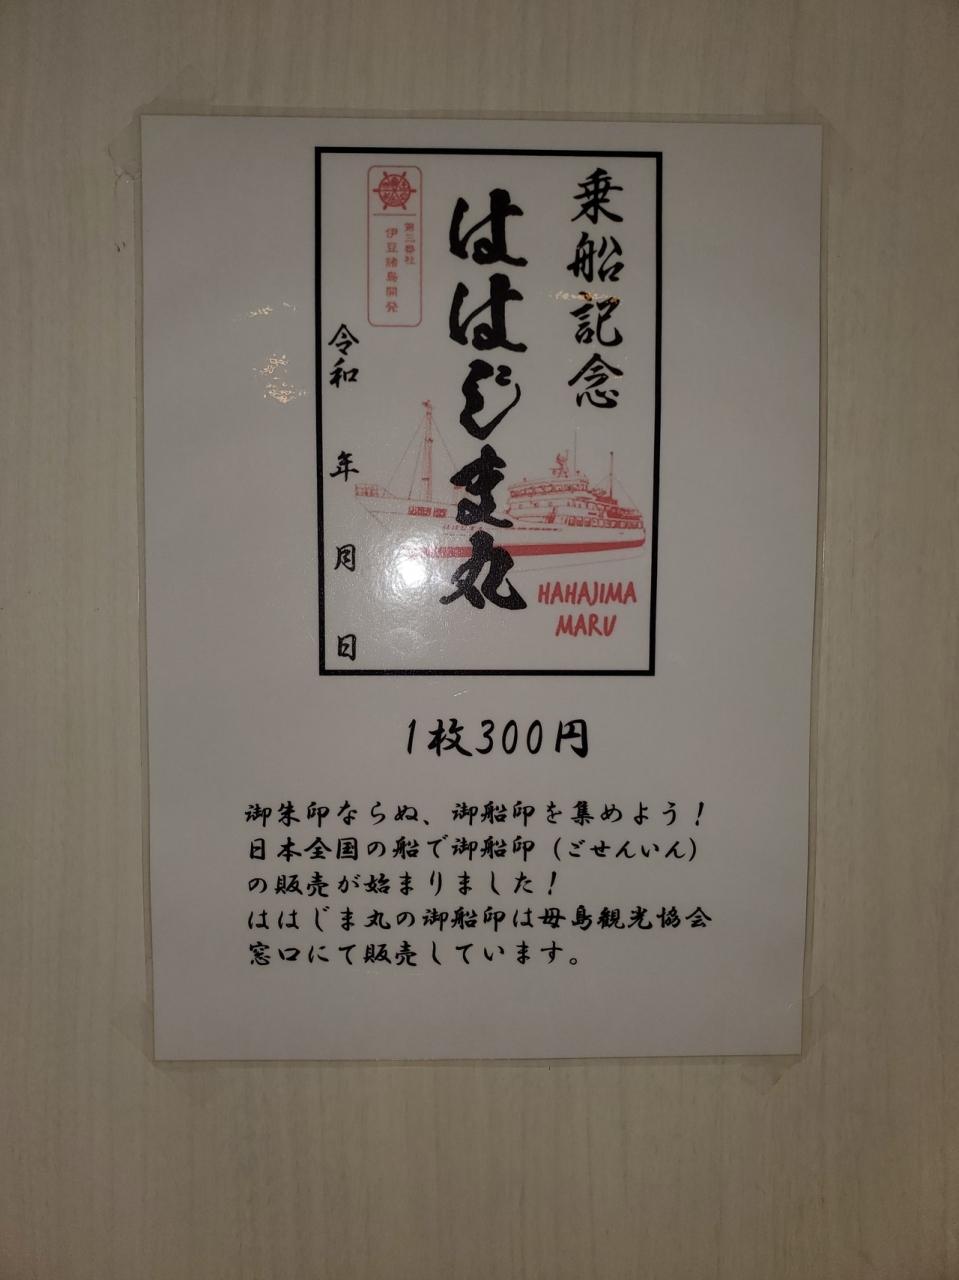 乗船記念
ははじま丸
第三番社
伊豆諸島開発
令和 年 月 日
HAHAJIMA
MARU
1枚300円
御朱印ならぬ、御船印を集めよう！
日本全国の船で御船印（ごせんいん）
の販売が始まりました！
ははじま丸の御船印は母島観光協会
窓口にて販売しています。